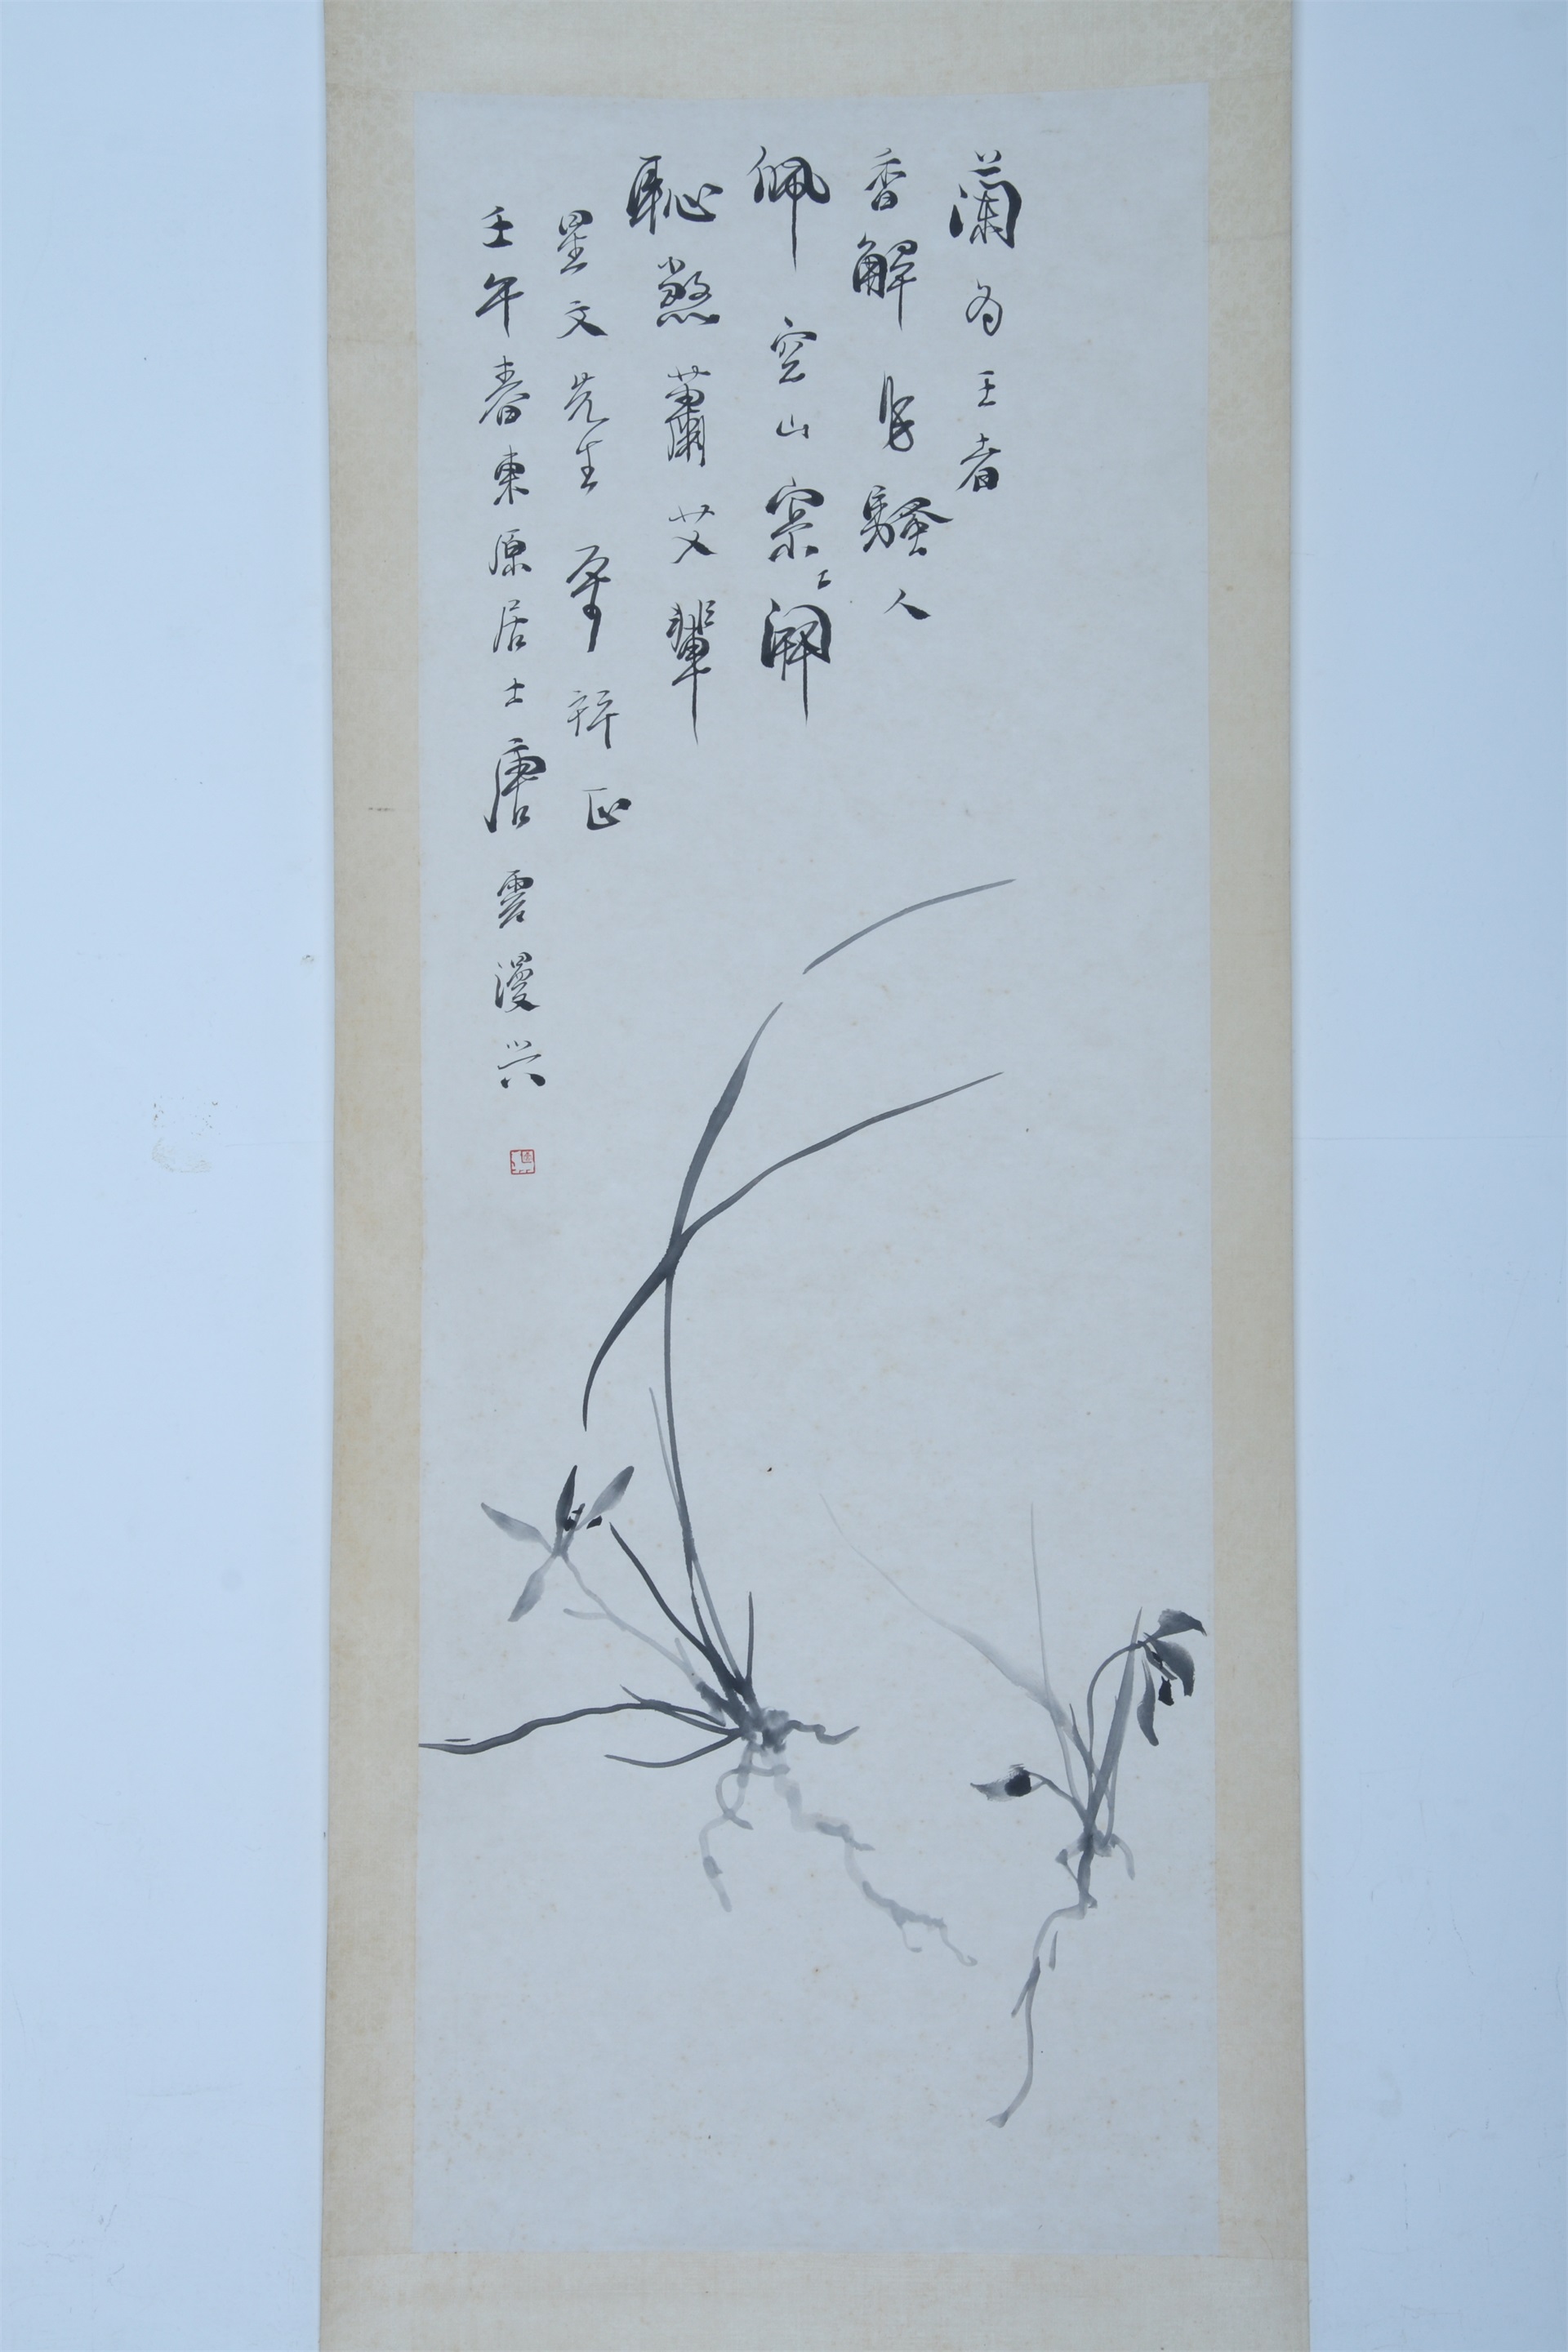 蘭為王者
香解騷人
佩空山寂寂開
恥煞蕭艾輩
星文先生正
壬午春東原居士唐雲漫兴